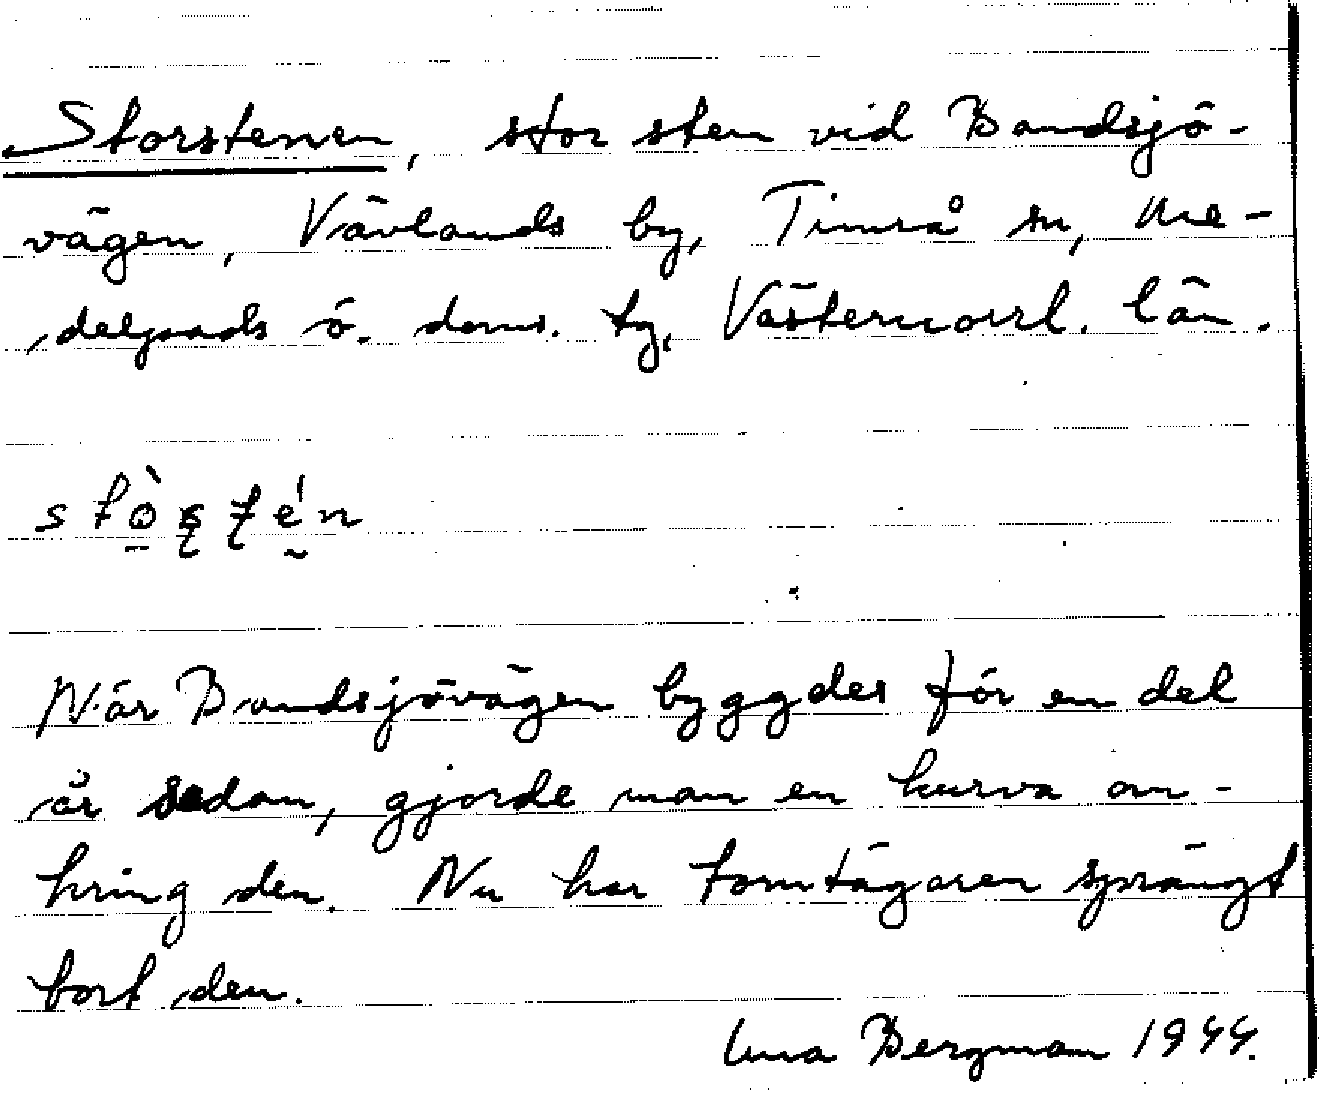 Storstenen, stor sten vid Bandsjö-
vägen, Vävlands by, Timrå sn, Me-
delpads ö. doms. tg, Västernorrl. län.
stò̱ʂʈé̮n
När Bandsjövägen byggdes för en del
år sedan, gjorde man en kurva om-
kring den. Nu har tomtägaren sprängt
bort den.
Una Bergman 1944.